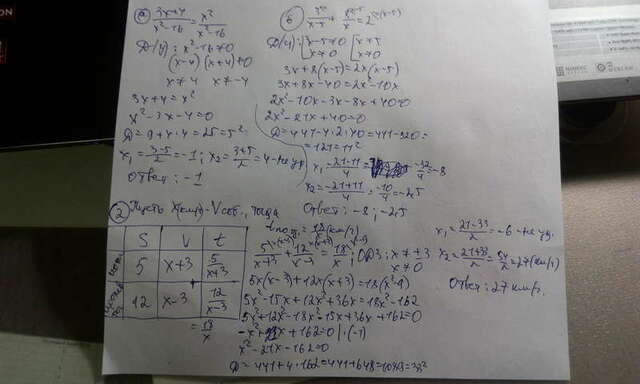 а) (3x+4)/(x²-16) = x²/(x²-16)
Д/у: x²-16≠0
(x-4)(x+4)≠0
x≠4 x≠-4
3x+4=x²
x²-3x-4=0
D=9+4·4=25=5²
x₁=(3-5)/2=-1; x₂=(3+5)/2=4-не уд.
Ответ: -1
б
x-5≠0 x≠5
x≠0 x≠0
3x+8(x-5)=2x(x-5)
3x+8x-40=2x²-10x
2x²-10x-3x-8x+40=0
2x²-21x+40=0
D=441-4·2·40=441-320=
=121=11²
x₁=(-21-11)/4= -32/4=-8
x₂=(-21+11)/4=-10/4=-2,5
Ответ: -8; -2,5
2 Пусть x(км/ч)-V соб., тогда
S V t
5 x+3 5/(x+3)
12 x-3 12/(x-3)
=18/x
5/(x+3) + 12/(x-3) = 18/x; ОДЗ: x≠±3
x≠0
5x(x-3)+12x(x+3)=18(x²-9)
5x²-15x+12x²+36x=18x²-162
5x²+12x²-18x²-15x+36x+162=0
-x²+21x+162=0 |·(-1)
x²-21x-162=0
D=441+4·162=441+648=1089=33²
x₁=(21-33)/2=-6-не уд.
x₂=(21+33)/2=54/2=27(км/ч)
Ответ: 27 км/ч.